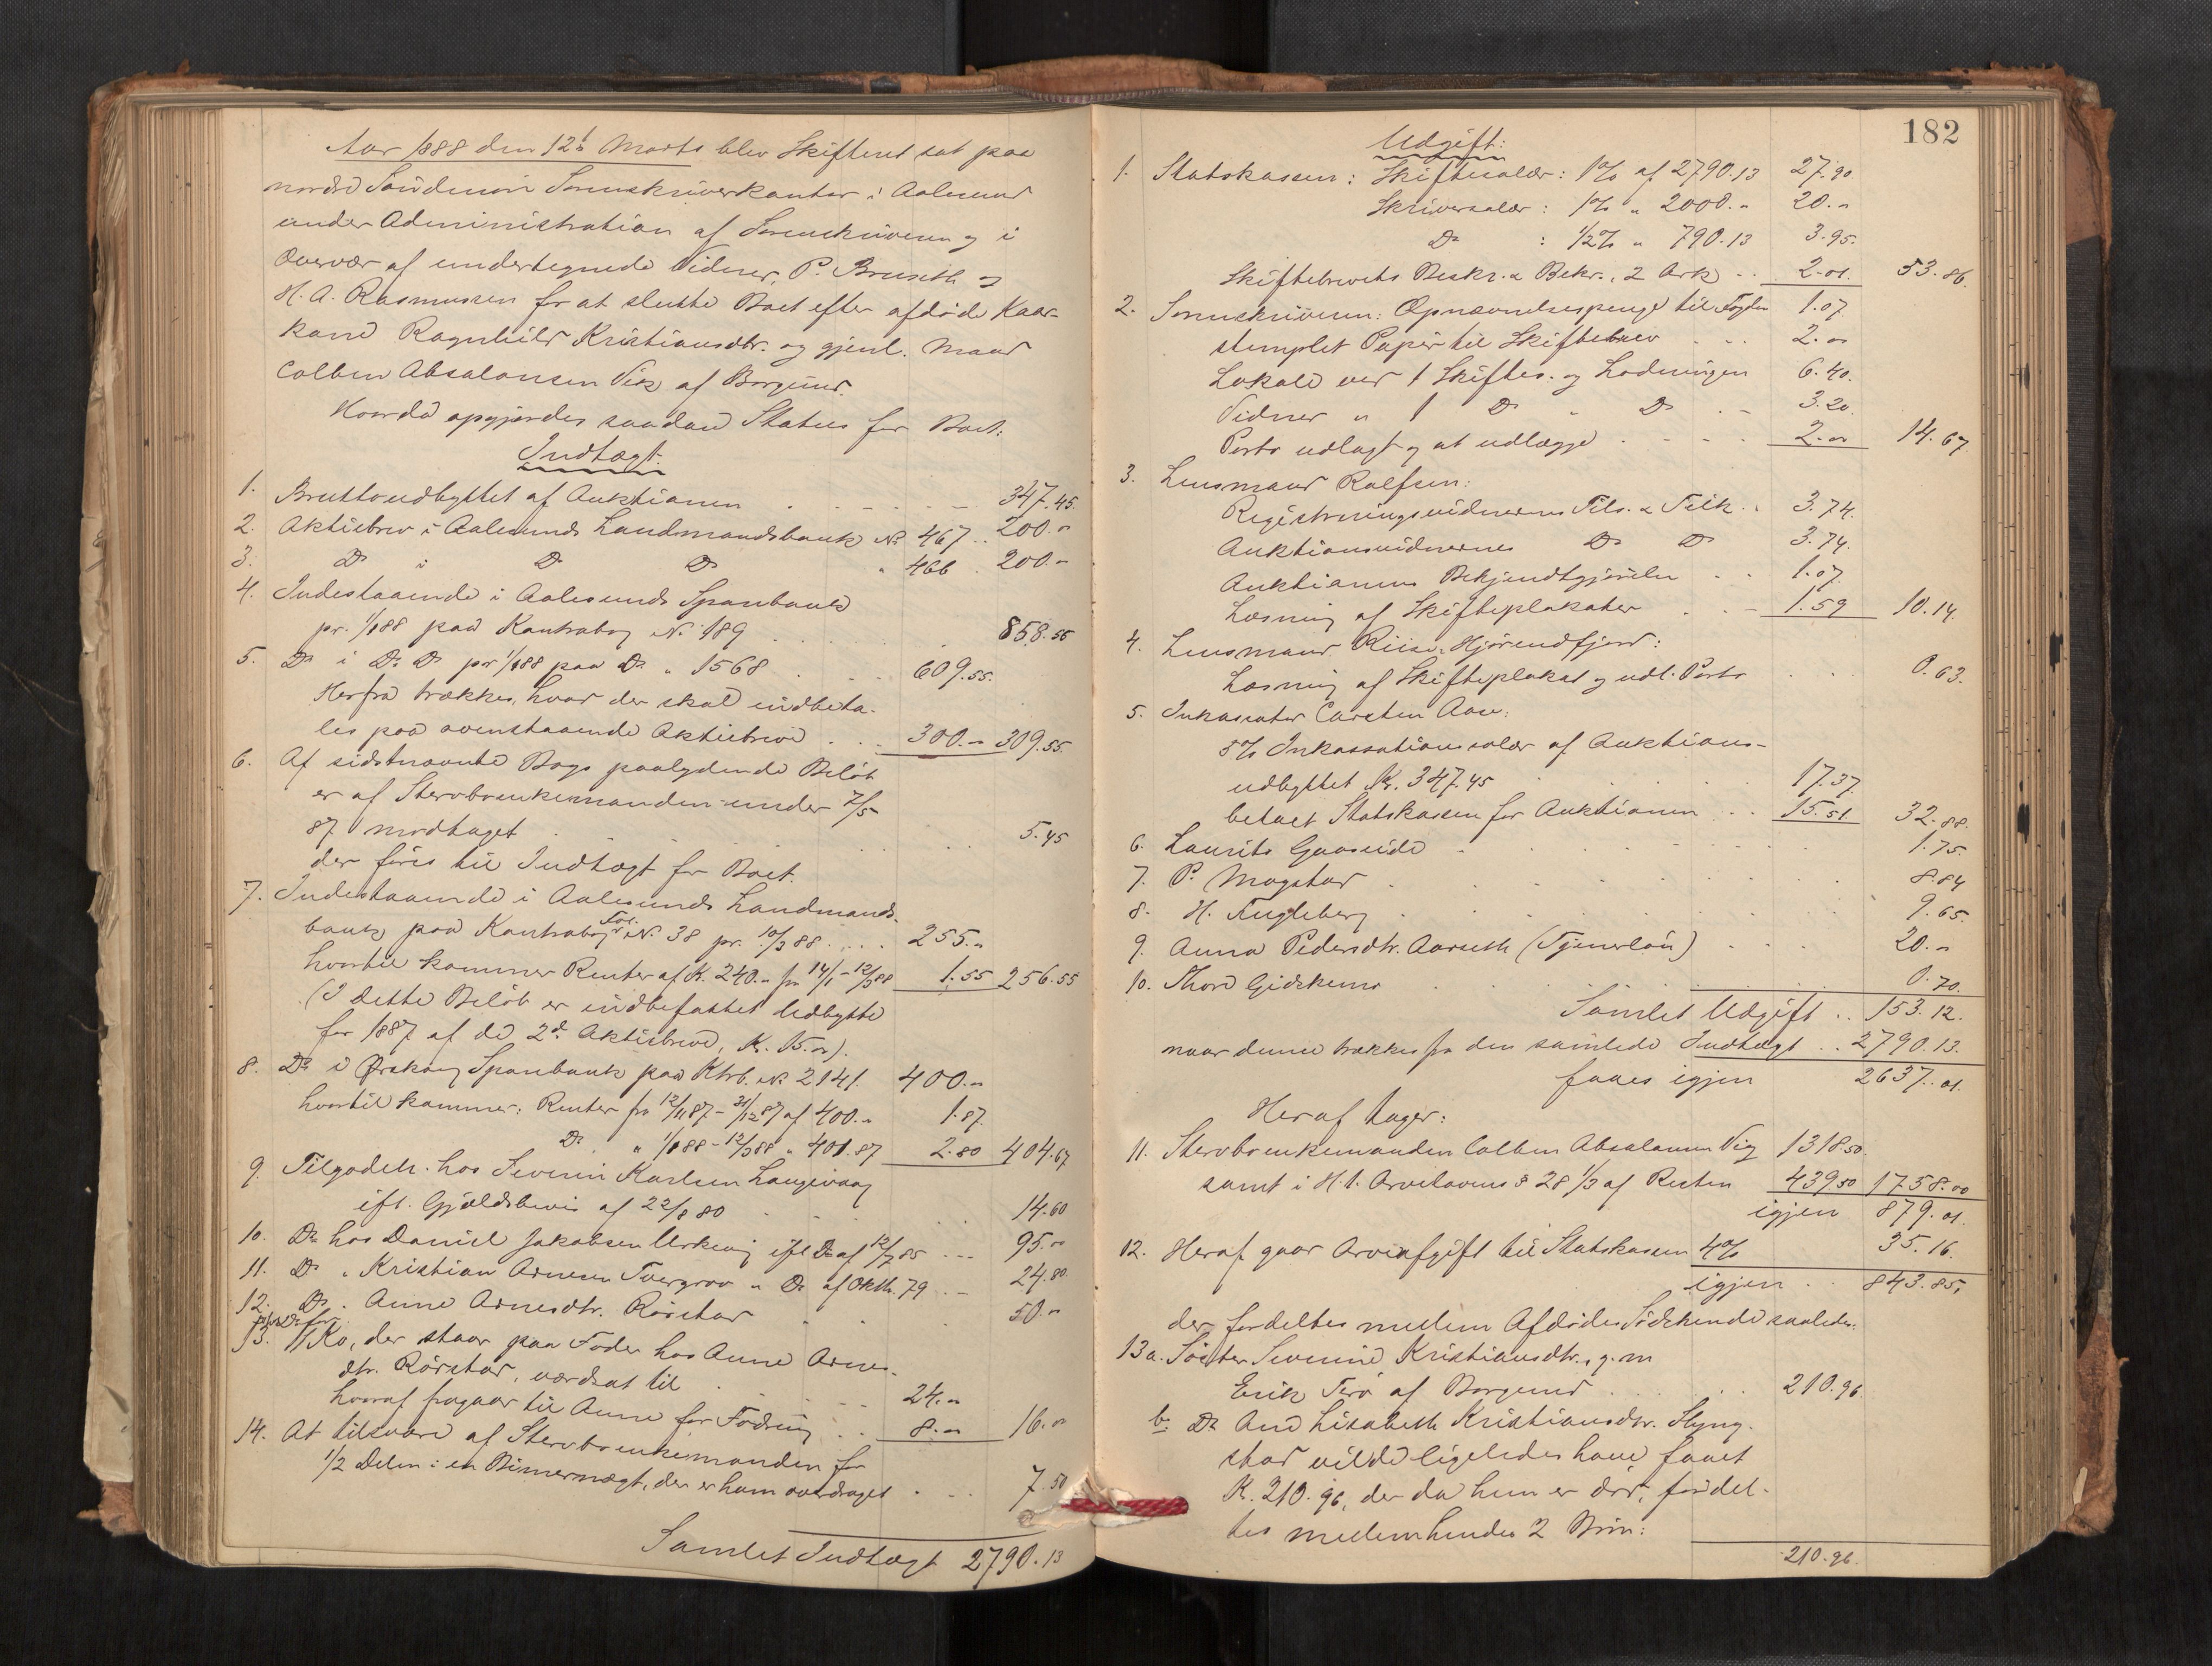 Aar 1888 den 12te Marts blev Skifteret sat paa
nordre Søndmør Sorenskriverkontor i Aalesund
under Administration af Sorenskriveren og i
Overvær af undertegnede Vidner, P. Bruseth og
H. A. Rasmussen for at slutte Boet efter afdøde Kaar-
kone Ragnhild Kristiansdtr. og gjenl. Mand
Colben Absalonsen Vik af Borgund.
Hvorda opgjordes saadan Status for Boet:
Indtægt.
1. Bruttoudbyttet af Auktionen . . . 347.45.
2. Aktiebrev i Aalesunds Landmandsbank No 467 .. 200.„
3. Do i Do Do „ 466 . 200.„
4. Indestaaende i Aalesunds Sparebank
pr. 1/1 88 paa Kontrabog No. 189 . . . 858.55
5. Do i Do Do pr 1/1 88 paa Do „ 1568 . . . 609.55.
Herfra trækkes, hvad der skal indbeta-
les paa ovenstaaende Aktiebreve . . . 300.„ 309.55.
6. Af sidstnævnte Bogs paalydende Beløb
er af Stervboenkemanden under 7/5
87 modtaget . . . 5.45
der føres til Indtægt for Boet.
7. Indestaaende i Aalesunds Landmands-
bank paa Kontrabog Fol. No. 38 pr. 10/3 88 .... 255.„
hvortil kommer Renter af K. 240.„ fra 14/1 - 12/3 88 1.55 256.55
(I dette Beløb er indbefattet Udbytte
for 1887 af de 2de Aktiebreve, K. 15.„).
8. Do i Ørskog Sparebank paa Ktrb. No 2141. 400.„
hvortil kommer: Renter fra 12/11 87 - 31/12 87 af 400.„ 1.87.
Do „ 1/1 88 - 12/3 88 „ 401.87 2.80 404.67
9. Tilgodeh. hos Severin Karlsen Langevaag
ifl. Gjældsbevis af 22/8 80 . . . 14.60
10. Do hos Daniel Jakobsen Urkevig ifl Do af 12/7 85 ... 95.„
11. Do „ Kristian Arnesen Tvergrov „ Do af Oktb. 79 .. 24.80
12. Do „ Anne Arnesdtr. Rørstad . . . 50.„
13. 1 Ko, der staar paa Foder hos Anne Arnes-
dtr. Rørstad, værdsat til . . . 24.„
hvoraf fragaar til Anne for Fodring . . 8.„ 16.„
14. At tilsvare af Stervboenkemanden for
1/2 Delen i en Bismervægt, der er ham overdraget . . . 7.50
Samlet Indtægt 2790.13
182
Udgift:
1. Statskassen: Skiftesalær: 1% af 2790.13 27.90
Skriversalær: 1% „ 2000.„ 20.„
Do : 1/2% „ 790.13 3.95.
Skiftebrevets Beskr. & Bekr., 2 Ark .. 2.01. 53.86.
2. Sorenskriveren: Opnævnelsespenge til Fogden 1.07
stemplet Papir til Skiftebrev . . . 2.„
Lokale ved 1 Skiftes. og Lodningen 6.40.
Vidner „ 1 Do „ Do . . 3.20.
Porto udlagt og at udlægge . . . . 2.„ 14.67
3. Lensmand Rolfsen:
Registreringsvidnernes Tils. & Tilk. . 3.74.
Auktionsvidnernes Do Do 3.74.
Auktionens Bekjendtgjørelse . . 1.07.
Læsning af Skifteplakater . . 1.59 10.14.
4. Lensmand Riise, Hjørendfjord:
Læsning af Skifteplakat og udl. Porto . . . 0.63.
5. Inkassator Carsten Aase:
5% Inkassationssalær af Auktions-
udbyttet K. 347.45 . . . 17.37.
betalt Statskassen for Auktionen . . 15.51 32.88.
6. Laurits Gaaseide . . . 1.75.
7. P. Mogstad . . . 8.84
8. H. Fugleberg . . . 9.65.
9. Anna Pedersdtr. Aarseth (Tjenerløn) . . . 20.„
10. Thore Gidskemo . . . 0.70.
Samlet Udgift .. 153.12.
naar denne trækkes fra den samlede Indtægt .. 2790.13.
faaes igjen 2637.01.
Heraf tager:
11. Stervboenkemanden Colben Absalonsen Vig 1318.50.
samt i H. t. Arvelovens § 28 1/3 af Resten 439.50 1758.00
igjen 879.01.
12. Heraf gaar Arveafgift til Statskassen 4% 35.16.
igjen . . 843.85,
der fordeltes mellem Afdødes Sødskende saaledes:
13a. Søster Severine Kristiansdtr., g. m
Erik Terø af Borgund . . . 210.96.
b. Do Ane Lisabeth Kristiansdtr. Slyng-
stad vilde ligeledes have faaet
K. 210.96, der da hun er død, fordel-
tes mellem hendes 2 Børn:
210.96.